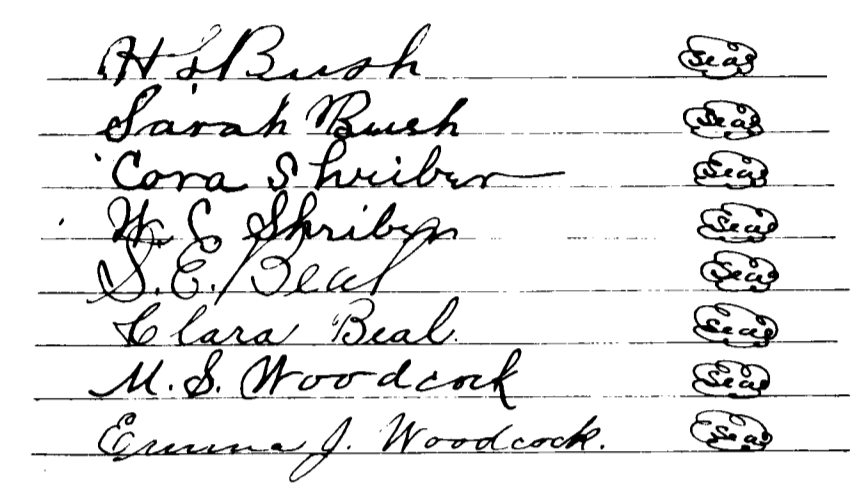 H S Bush Seal
Sarah Bush Seal
Cora Shriber Seal
W. C Shriber Seal
S. E. Beal Seal
Clara Beal. Seal
M. S. Woodcock Seal
Emma J. Woodcock. Seal